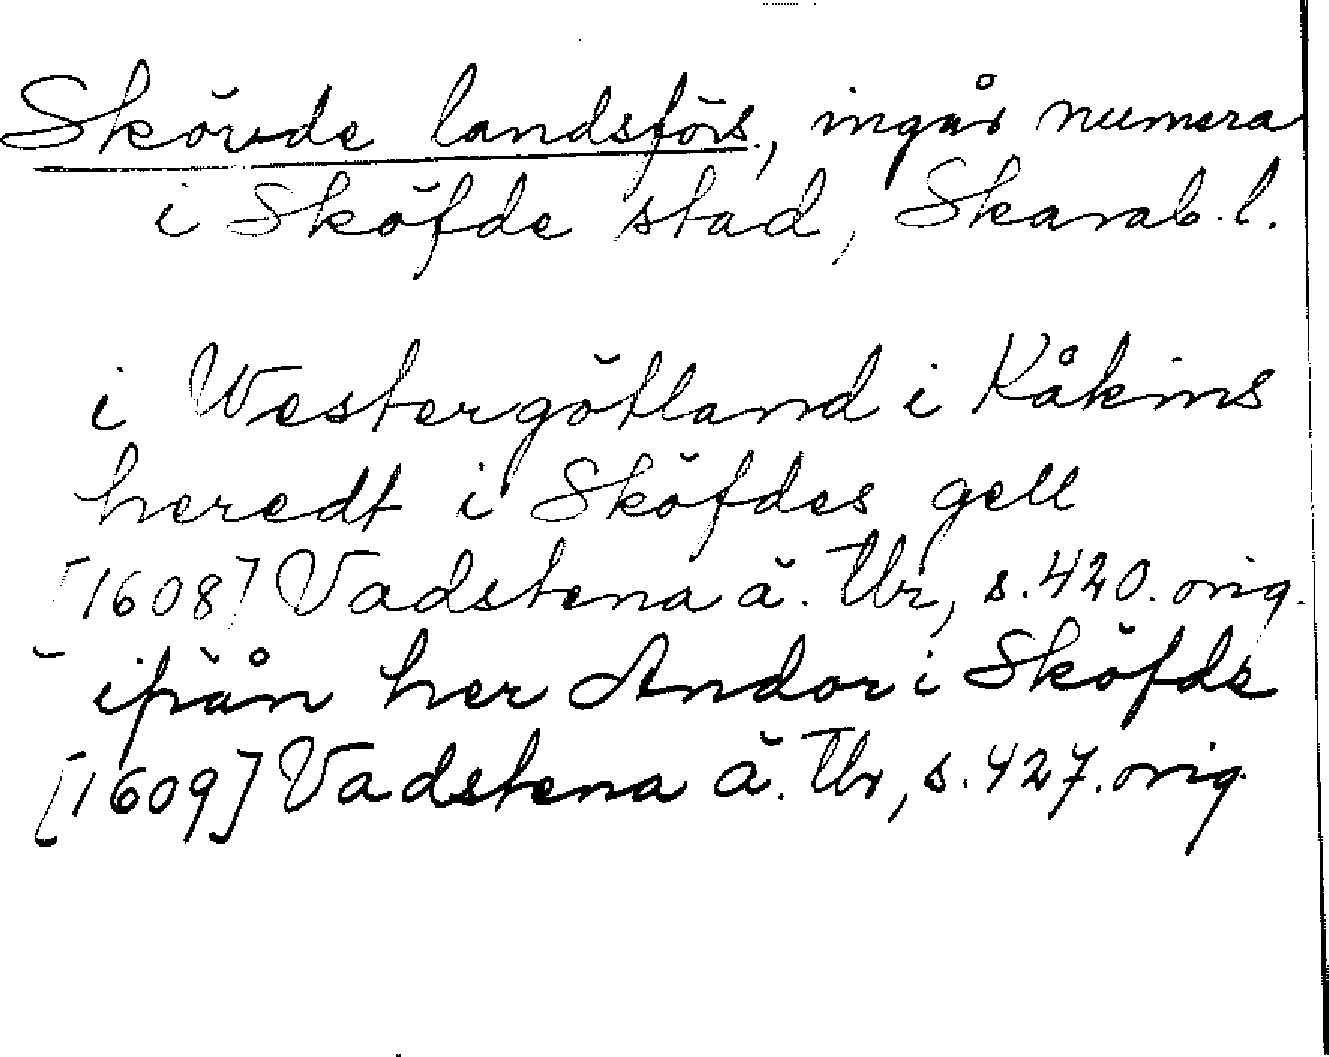 Skövde landsförs., ingår numera
i Sköfde stad, Skarab. l.
i Westergötland i Kåkins
heredt i Sköfdes gell
[1608] Vadstena ä. Tbr, s. 420. orig.
ifrån her Andor i Sköfde
[1609] Vadstena ä. Tbr, s. 427. orig